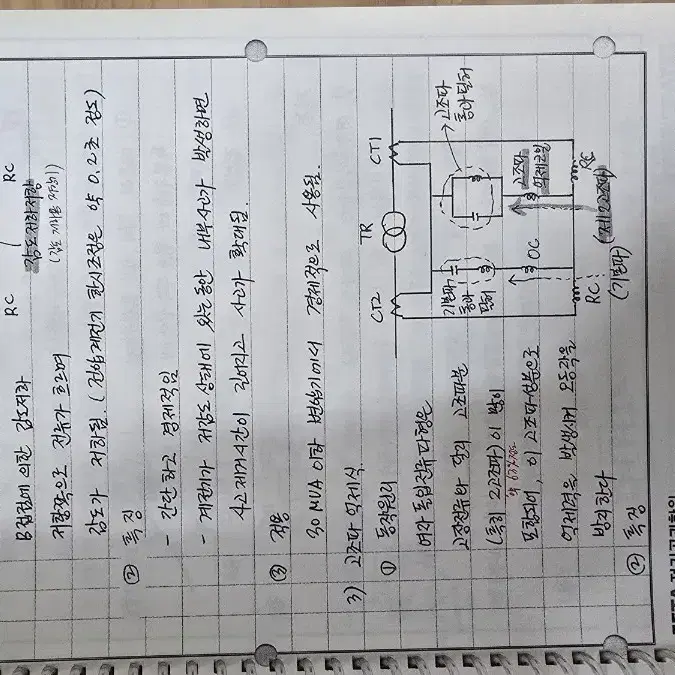 RC
RC
감도저하저항
B접점에 의한 감도저하
저항쪽으로 전류가 흐르며
감도가 저하됨. (전압계전기 한시조정은 약 0.2초 정도)
② 특징
- 간단하고 경제적임
- 계전기가 저감도 상태에 있는 동안 내부사고가 발생하면
사고제거시간이 길어지고 사고가 확대됨.
③ 적용
30 MVA 이하 변압기에서 경제적으로 사용됨.
3) 고조파 억제식
① 동작원리
여자돌입전류 파형은
고장전류와 달리 고조파분
(특히 2고조파)이 많이
포함되어, 이 고조파성분으로
억제력을 발생시켜 오동작을
방지한다
② 특징
CT2
TR
CT1
기본파
통과
필터
고조파
통과필터
OC
고조파
억제코일
RC
(기본파)
RC
(제2고조파)